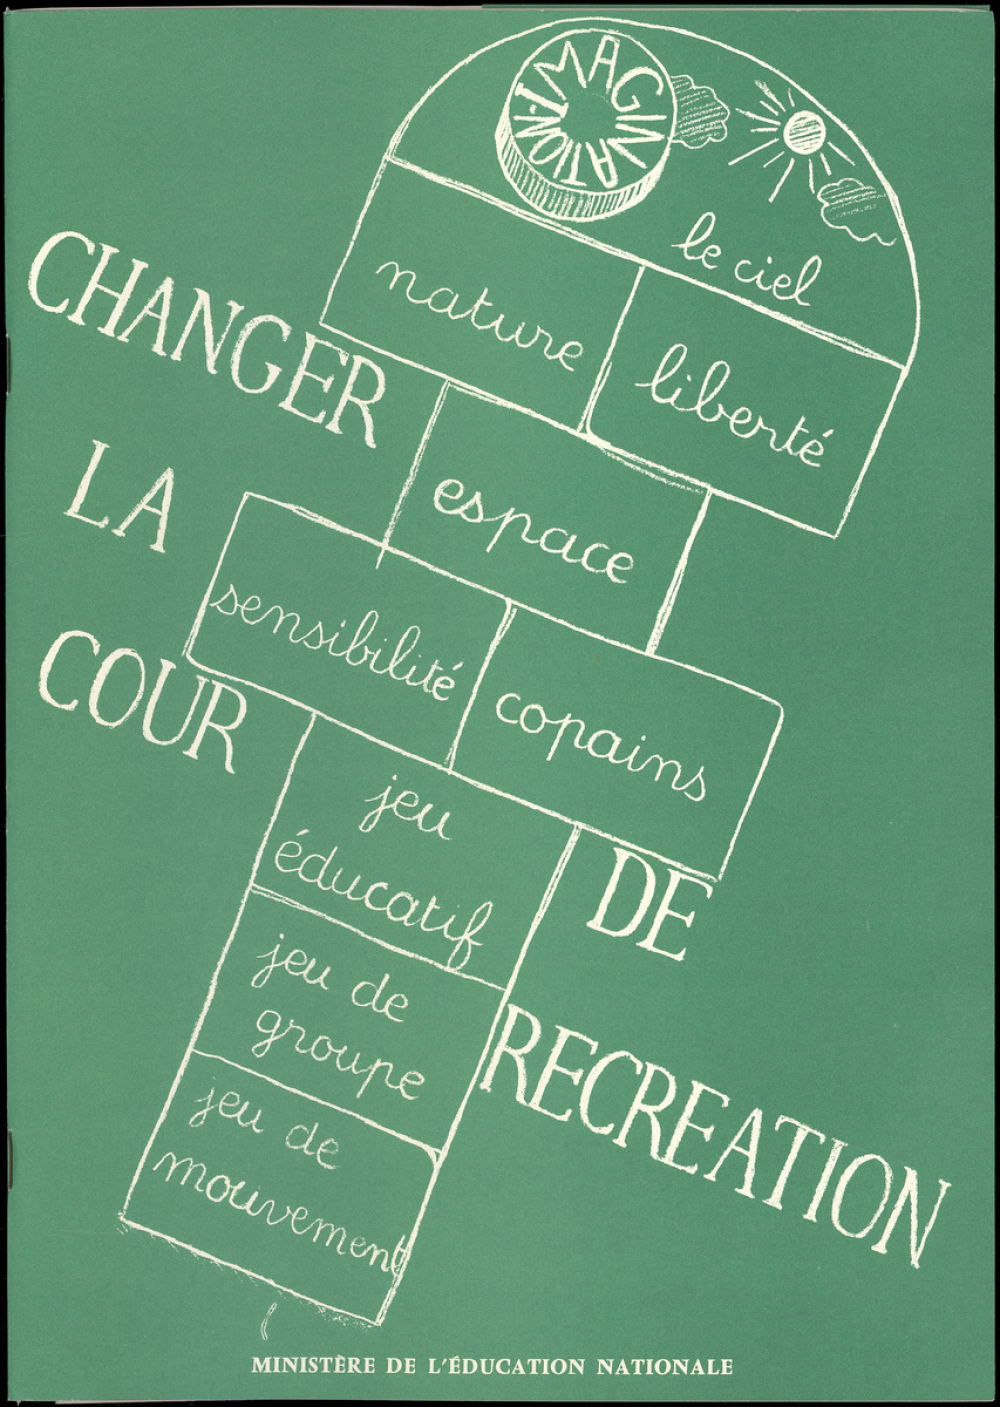 IMAGINATION
le ciel
nature
liberté
CHANGER
espace
LA
sensibilité
copains
COUR
jeu
éducatif
DE
jeu de
groupe
RECREATION
jeu de
mouvement
MINISTÈRE DE L'ÉDUCATION NATIONALE